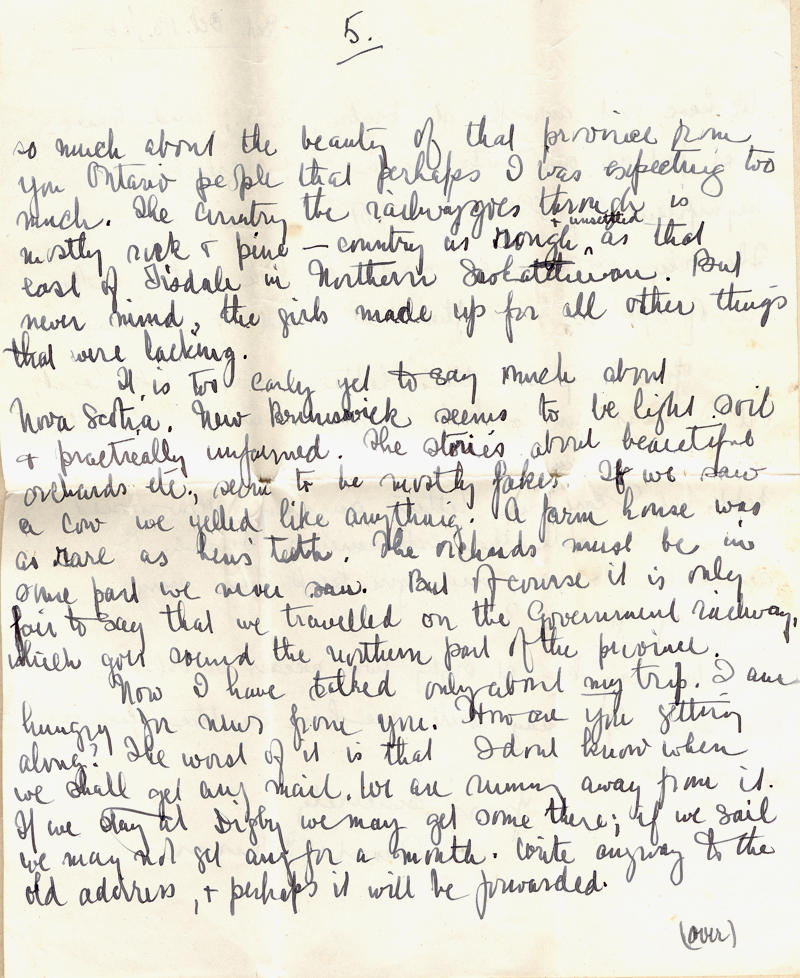 5.
so much about the beauty of that province from
you Ontario people that perhaps I was expecting too
much. The country the railway goes through is
+ unsettled
mostly rock + pine – country as rough, as that
east of Tisdale in Northern Saskatchewan. But
never mind, the girls made up for all other things
that were lacking.
It is too early yet to say much about
Nova Scotia. New Brunswick seems to be light soil
+ practically unfarmed. The stories about beautiful
orchards etc., seem to be mostly fakes. If we saw
a cow we yelled like anything. A farm house was
as rare as hen's teeth. The orchards must be in
some part we never saw. But of course it is only
fair to say that we travelled on the Government railway,
which goes round the northern part of the province.
Now I have talked only about my trip. I am
hungry for news from you. How are you getting
along? The worst of it is that I dont know when
we shall get any mail. We are running away from it.
If we stay at Digby we may get some there; if we sail
we may not get any for a month. Write anyway to the
old address, + perhaps it will be forwarded.
(over)